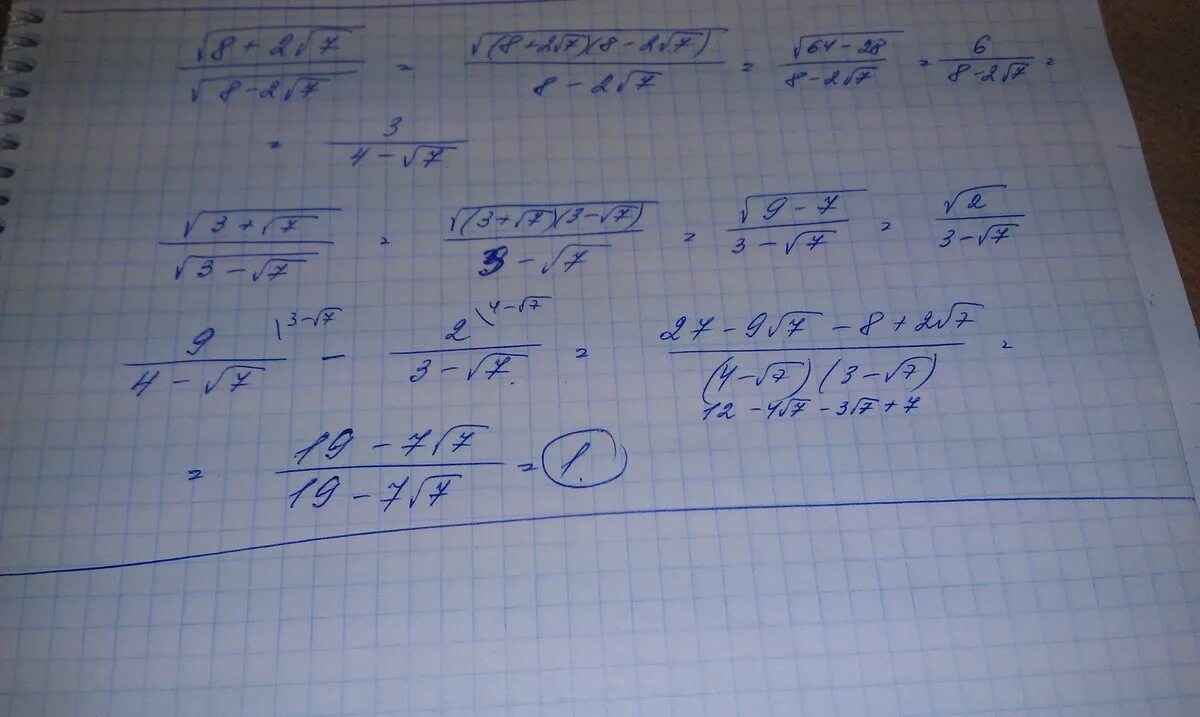 √(8+2√7) / √(8-2√7) = √((8+2√7)(8-2√7)) / (8-2√7) = √(64-28) / (8-2√7) = 6 / (8-2√7) =
= 3 / (4-√7)
√(3+√7) / √(3-√7) = √((3+√7)(3-√7)) / (3-√7) = √(9-7) / (3-√7) = √2 / (3-√7)
9 \3-√7 / (4-√7) - 2 \4-√7 / (3-√7) = (27-9√7-8+2√7) / (4-√7)(3-√7) =
12-4√7-3√7+7
= (19-7√7) / (19-7√7) = 1.